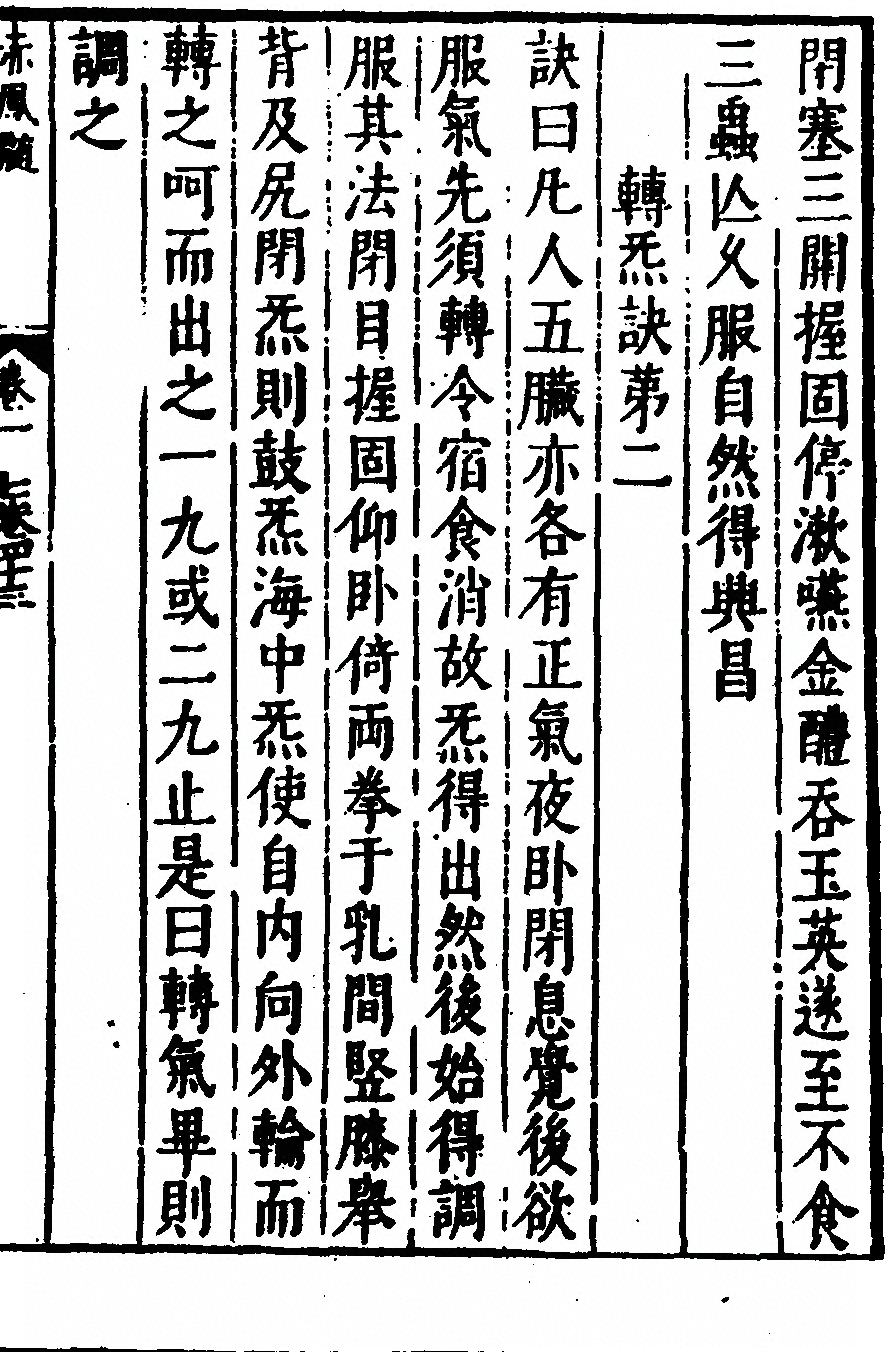 閉塞三關握固停漱嚥金醴吞玉英遂至不食
三蟲亾乆服自然得興昌
轉炁訣苐二
訣曰凡人五臟亦各有正氣夜卧閉息覺後欲
服氣先須轉令宿食消故炁得出然後始得調
服其法閉目握固仰卧倚両拳于乳間竪膝舉
背及尻閉炁則鼓炁海中炁使自内向外輪而
轉之呵而出之一九或二九止是曰轉氣畢則
調之
赤鳳髓
卷一